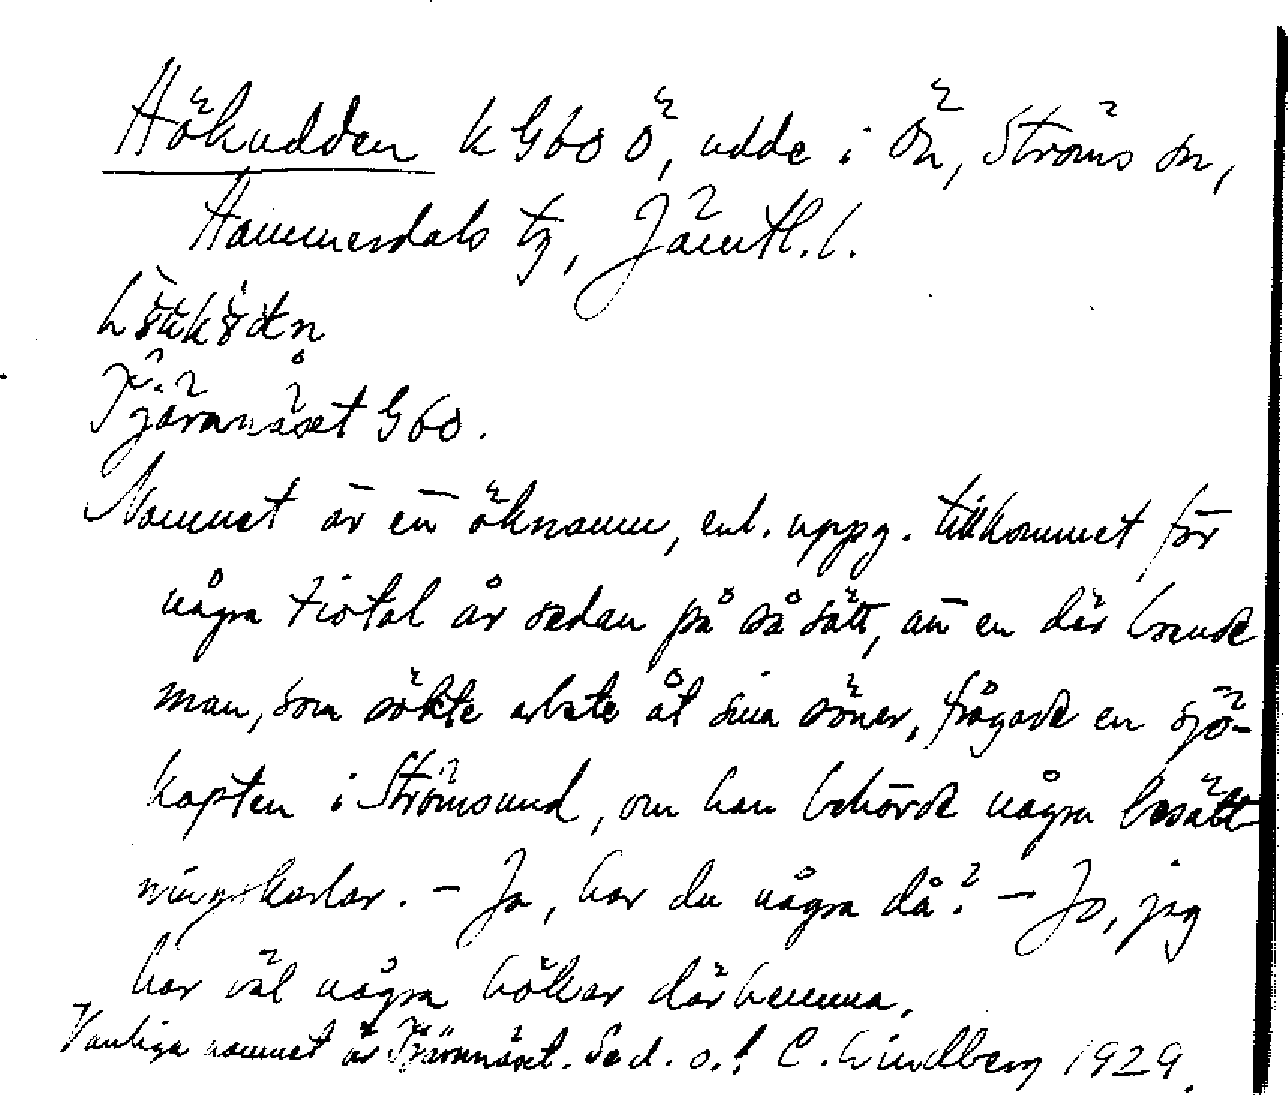 Hökudden k G60 Ö, udde i Ön, Ströms sn,
Hammerdals tg, Jämtl. l.
Tjärnnäset G60.
Namnet är ett öknamn, enl. uppg. tillkommet för
några tiotal år sedan på så sätt, att en där boende
man, som sökte arbete åt sina söner, frågade en sjö-
kapten i Strömsund, om han behövde några besätt-
ningskarlar. – Ja, har du några då? – Jo, jag
har väl några hökar därhemma.
Vanliga namnet är Tjärnnäset. C. Lindberg 1929.